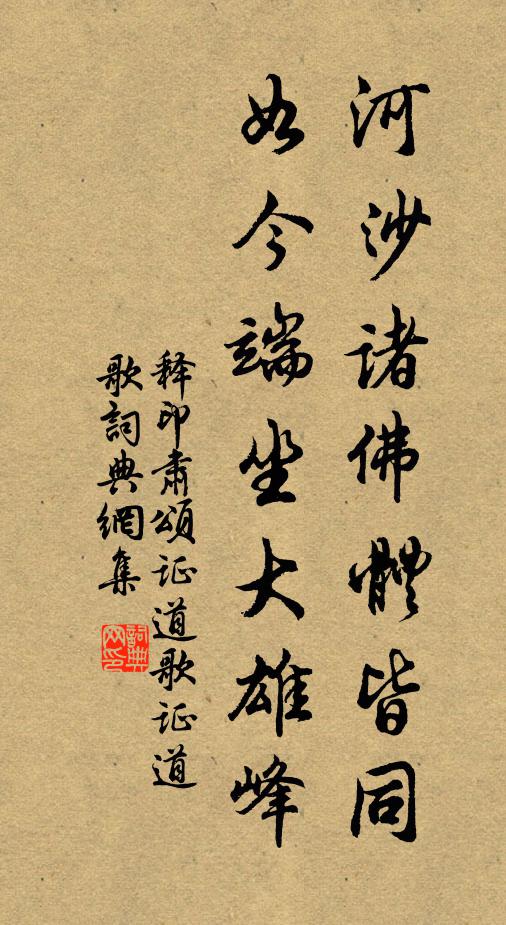 河沙諸佛體皆同
如今端坐大雄峰
释印肃頌证道歌证道
歌詞典網集
詞典网印